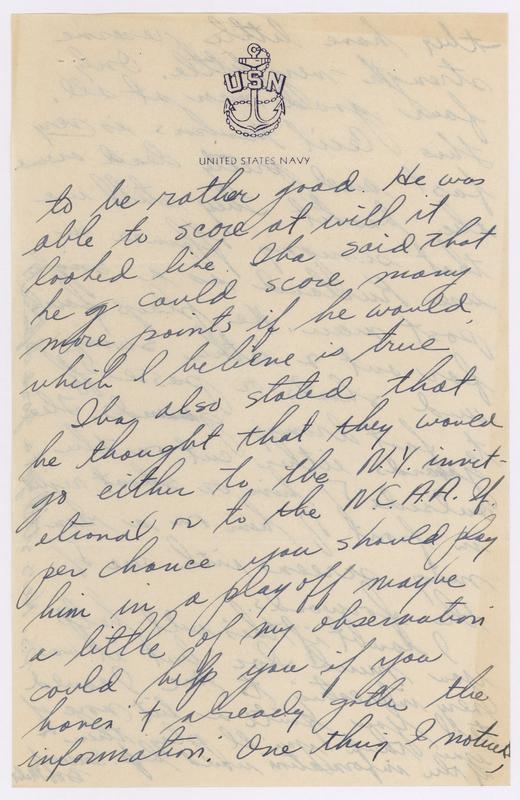 USN
UNITED STATES NAVY
to be rather good. He was
able to score at will it
looked like. Iba said that
he g could score many
more points if he would,
which I believe is true
Iba also stated that
he thought that they would
go either to the N.Y. invit-
etional or to the N.C.A.A. If
per chance you should play
him in a playoff maybe
a little of my observation
could help you if you
haven't already gotten the
information. One thing I noticed,